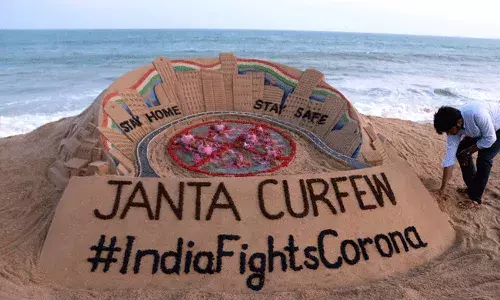 STAY HOME STAY SAFE
JANTA CURFEW
#IndiaFightsCorona